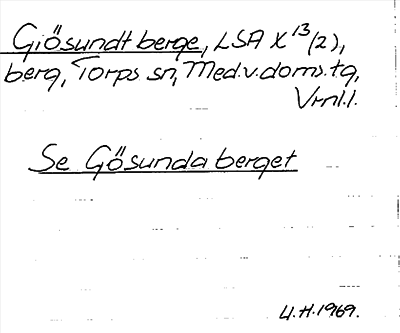 Giösundt berge, LSA X 13/(2),
berg, Torps sn, Med.v.doms.tg,
Vrnl.l.
Se Gösunda berget
U.H.1969.